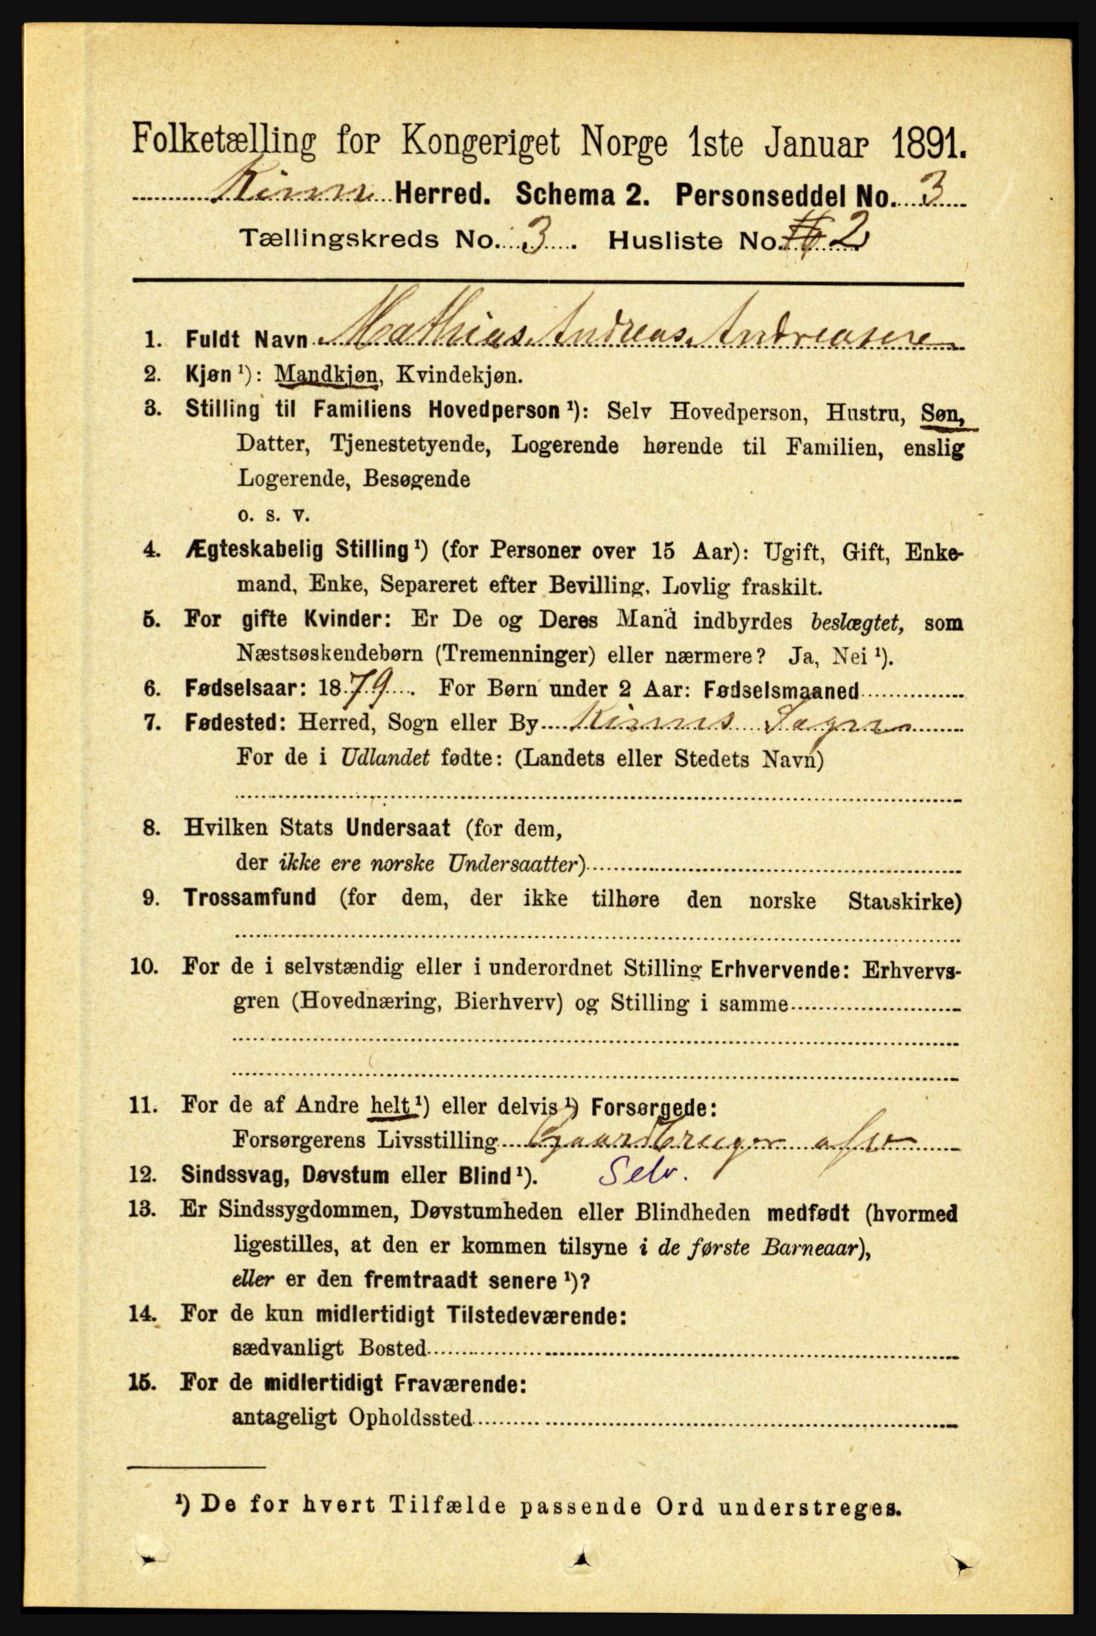 Folketælling for Kongeriget Norge 1ste Januar 1891.
Kinn Herred. Schema 2. Personseddel No. 3
Tællingskreds No. 3. Husliste No. 2
1. Fuldt Navn Mathias Andreas Andreasen
2. Kjøn ¹): Mandkjøn, Kvindekjøn.
3. Stilling til Familiens Hovedperson ¹): Selv Hovedperson, Hustru, Søn,
Datter, Tjenestetyende, Logerende hørende til Familien, enslig
Logerende, Besøgende
o. s. v.
4. Ægteskabelig Stilling ¹) (for Personer over 15 Aar): Ugift, Gift, Enke-
mand, Enke, Separeret efter Bevilling, Lovlig fraskilt.
5. For gifte Kvinder: Er De og Deres Mand indbyrdes beslægtet, som
Næstsøskendebørn (Tremenninger) eller nærmere? Ja, Nei ¹).
6. Fødselsaar: 1879. For Børn under 2 Aar: Fødselsmaaned
7. Fødested: Herred, Sogn eller By Kinns Sogn
For de i Udlandet fødte: (Landets eller Stedets Navn)
8. Hvilken Stats Undersaat (for dem,
der ikke ere norske Undersaatter)
9. Trossamfund (for dem, der ikke tilhøre den norske Statskirke)
10. For de i selvstændig eller i underordnet Stilling Erhvervende: Erhvervs-
gren (Hovednæring, Bierhverv) og Stilling i samme
11. For de af Andre helt ¹) eller delvis ¹) Forsørgede:
Forsørgerens Livsstilling Gaardbruger
12. Sindssvag, Døvstum eller Blind ¹). Selv.
13. Er Sindssygdommen, Døvstumheden eller Blindheden medfødt (hvormed
ligestilles, at den er kommen tilsyne i de første Barneaar),
eller er den fremtraadt senere ¹)?
14. For de kun midlertidigt Tilstedeværende:
sædvanligt Bosted
15. For de midlertidigt Fraværende:
antageligt Opholdssted
¹) De for hvert Tilfælde passende Ord understreges.